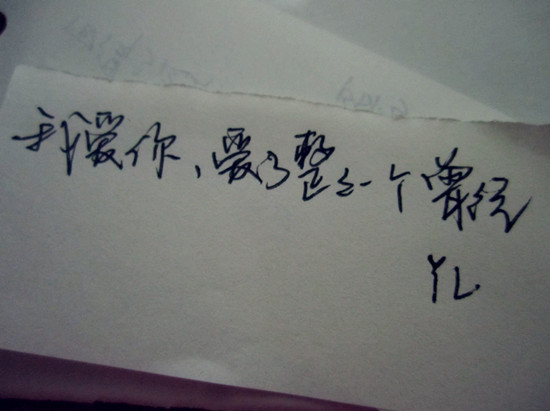 我爱你、爱了整整一个曾经
YL